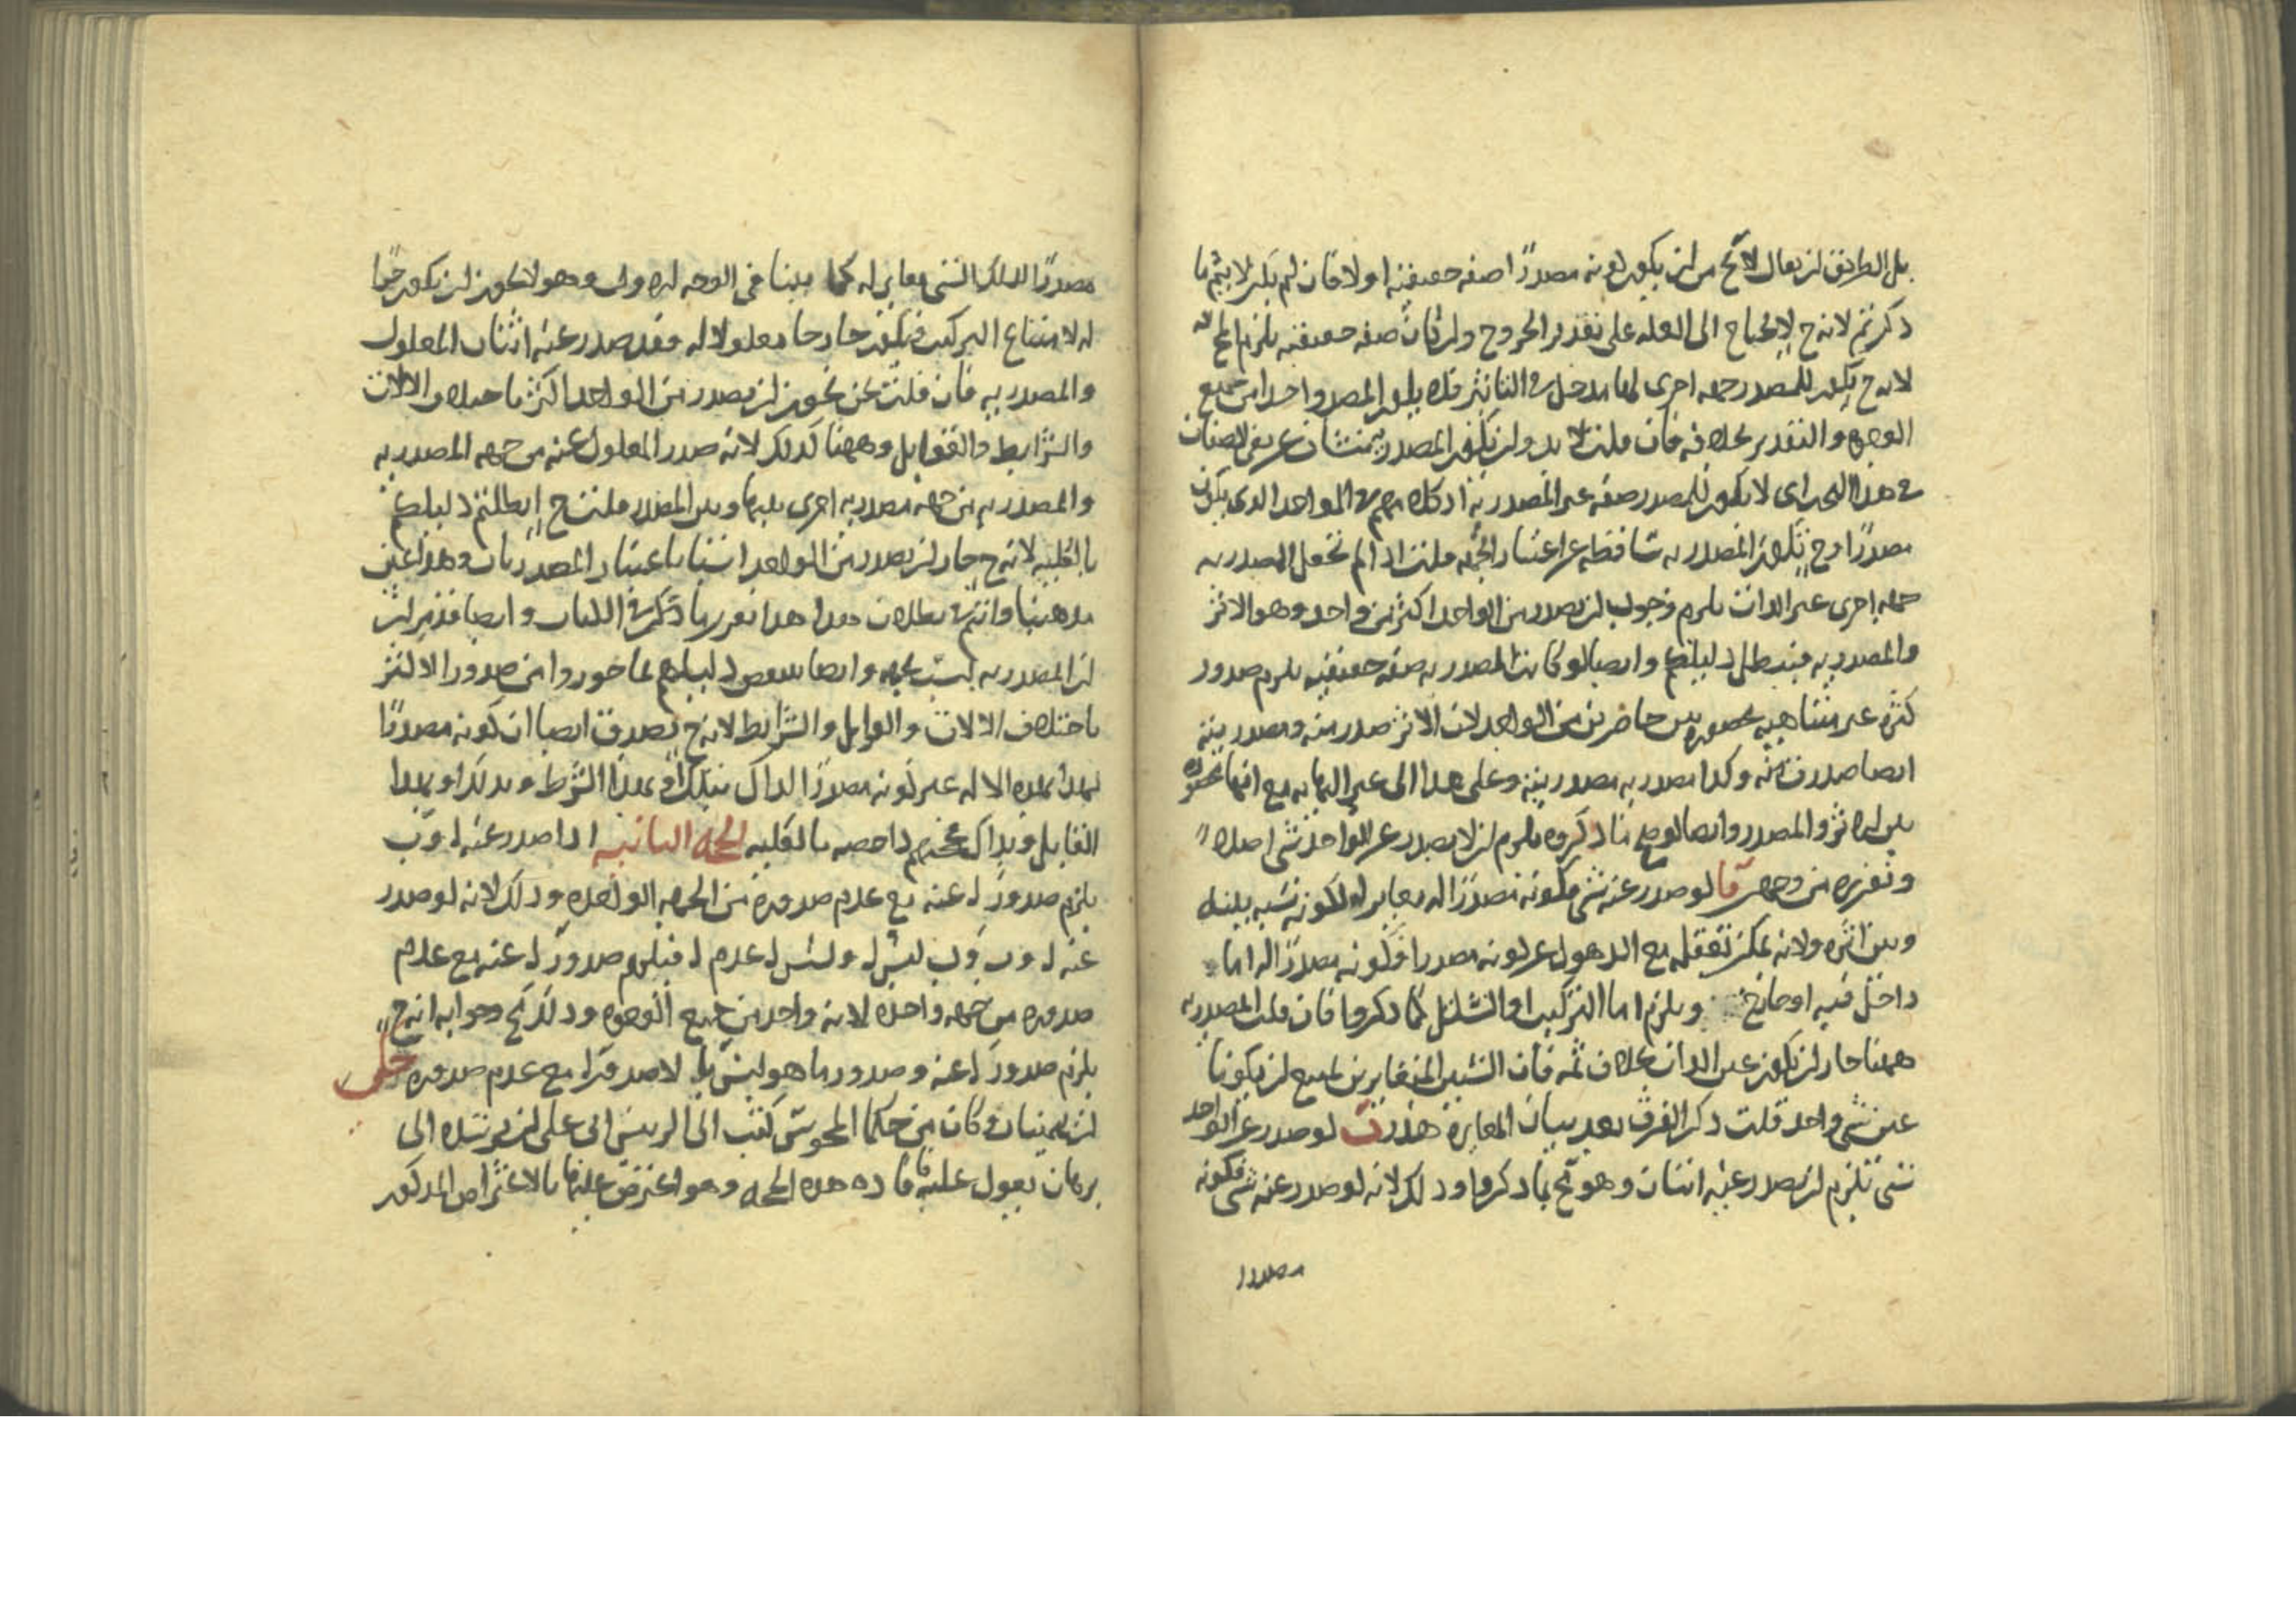 بل الطريق ان يقال لا يخ من ان يكون كونه مصدرًا صفه حقيقيه اولا فان لم يكن لا يتم ما
ذكرتم لانه ح لا يحتاج الى العله على تقدير الخروج وان كانت صفه حقيقيه يلزم المح
لانه ح يكون للمصدر جهه اخرى لها مدخل فى التاثير فلا يكون المصدر واحدا من جميع
الوجوه والتقدير بخلافه فان قلت لا بد وان يكون المصدر عن الصفات
فى هذا البحث اى لا يكون للمصدر صفه غير المصدريه اذ كلامهم فى الواحد الذى يكون
مصدرًا وح تكون المصدريه ساقطه عن اعتبار الجهه قلت اذا لم تجعل المصدريه
جهه اخرى غير الذات يلزم وجوب ان يصدر من الواحد اكثر من واحد وهو الاثر
والمصدريه فيبطل دليلكم وايضا لو كانت المصدريه صفه حقيقيه يلزم صدور
كثره غير متناهيه محصوره بين حاضرين من الواحد لان الاثر صدر منه ومصدريته
ايضا صدرت منه وكذا مصدريه مصدريته وعلى هذا الى غير النهايه مع انها محصوره
بين الاثر والمصدر وايضا لو صح ما ذكروه يلزم ان لا يصدر عن الواحد شى اصلا
وتقريره من وجهين آ لو صدر عنه شى فكونه مصدرًا له مغاير له لكونه نسبه بينه
وبين اثره ولانه يمكن تعقله مع الذهول عن كونه مصدرا فكونه مصدرًا له اما
داخل فيه او خارج ويلزم اما التركيب او التسلسل كما ذكروا فان قلت المصدريه
ههنا جاز ان يكون عين الذات بخلاف ثمه فان الشيئين المتغايرين يمتنع ان يكونا
عين شى واحد قلت ذكر الفرق بعد بيان المغايره هذر ب لو صدر عن الواحد
شى يلزم ان يصدر عنه اثنان وهو مح بما ذكروا وذلك لانه لو صدر عنه شى فكونه
مصدرا
مصدرًا لذلك الشى مغاير له كما بينا فى الوجه الاول وهو لا يجوز ان يكون جزءا
له لامتناع التركيب فيكون خارجا معلولا له فقد صدر عنه اثنان المعلول
والمصدريه فان قلت نحن نجوز ان يصدر من الواحد اكثر باختلاف الالات
والشرايط والقوابل وههنا كذلك لانه صدر المعلول عنه من جهه المصدريه
والمصدريه من جهه مصدريه اخرى بينها وبين المصدر قلت ح ابطلتم دليلكم
بالكليه لانه ح جاز ان يصدر من الواحد اشيا باعتبار المصدريات وهو عين
مذهبنا وانتم فى بطلان هذا هذا تقرير ما ذكر فى الكتاب وايضا
ان المصدريه ليست بجهه وايضا ينتقض دليلهم بما جوزوا من صدور الاكثر
باختلاف الالات والقوابل والشرايط لانه ح يصدق ايضا ان كونه مصدرًا
لهذا بهذه الاله غير كونه مصدرًا لذاك بتلك او بهذا الشرط وبذلك او بهذا
القابل وبذاك داحضه بالكليه الحجه الثانيه اذا صدر عنه ا وب
يلزم صدور ا عنه مع عدم صدوره من الجهه الواحده وذلك لانه لو صدر
عنه ا وب وب ليس ا وليس ا عدم ا فيلزم صدور ا عنه مع عدم
صدوره من جهه واحده لانه واحد من جميع الوجوه وذلك مح وجوابه انه ح
يلزم صدور ا عنه وصدور ما هو ليس با لا صدور ا مع عدم صدوره حكى
ان بهمنيار وكان من حكما المجوس كتب الى الرييس ابى على ان يرشده الى
برهان يعول عليه فافاده هذه الحجه وهو اعترض عليها بالاعتراض المذكور